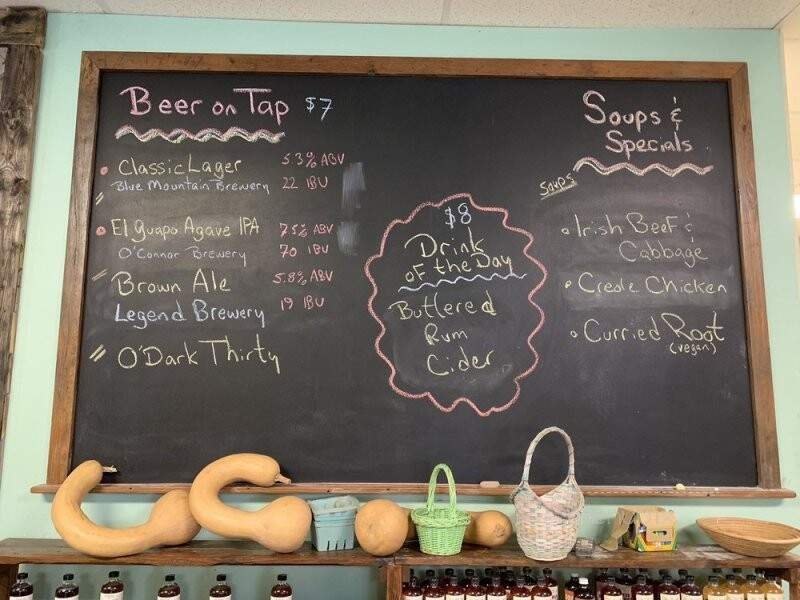 Beer on Tap $7
Classic Lager 5.3% ABV
Blue Mountain Brewery 22 IBU
El Guapo Agave IPA 7.5% ABV
O'Connor Brewery 70 IBU
Brown Ale 5.8% ABV
Legend Brewery 19 IBU
O'Dark Thirty
$8
Drink
of the Day
Buttered
Rum
Cider
Soups &
Specials
Soups
Irish Beef &
Cabbage
Creole Chicken
Curried Root
(vegan)